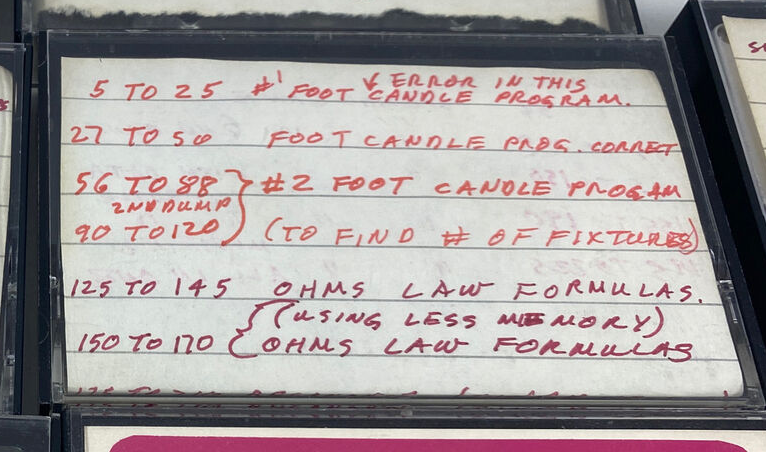 5 TO 25 #1 FOOT ↓ ERROR IN THIS
CANDLE PROGRAM.
27 TO 50 FOOT CANDLE PROG. CORRECT
56 TO 88 } #2 FOOT CANDLE PROGAM
2ND DUMP
90 TO 120 (TO FIND # OF FIXTURES)
125 TO 145 OHMS LAW FORMULAS.
(USING LESS MEMORY)
150 TO 170 { OHMS LAW FORMULAS